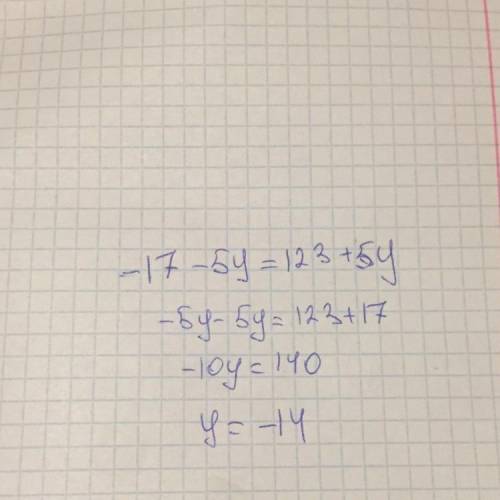 -17 -5y = 123 +5y
-5y - 5y = 123 + 17
-10y = 140
y = -14